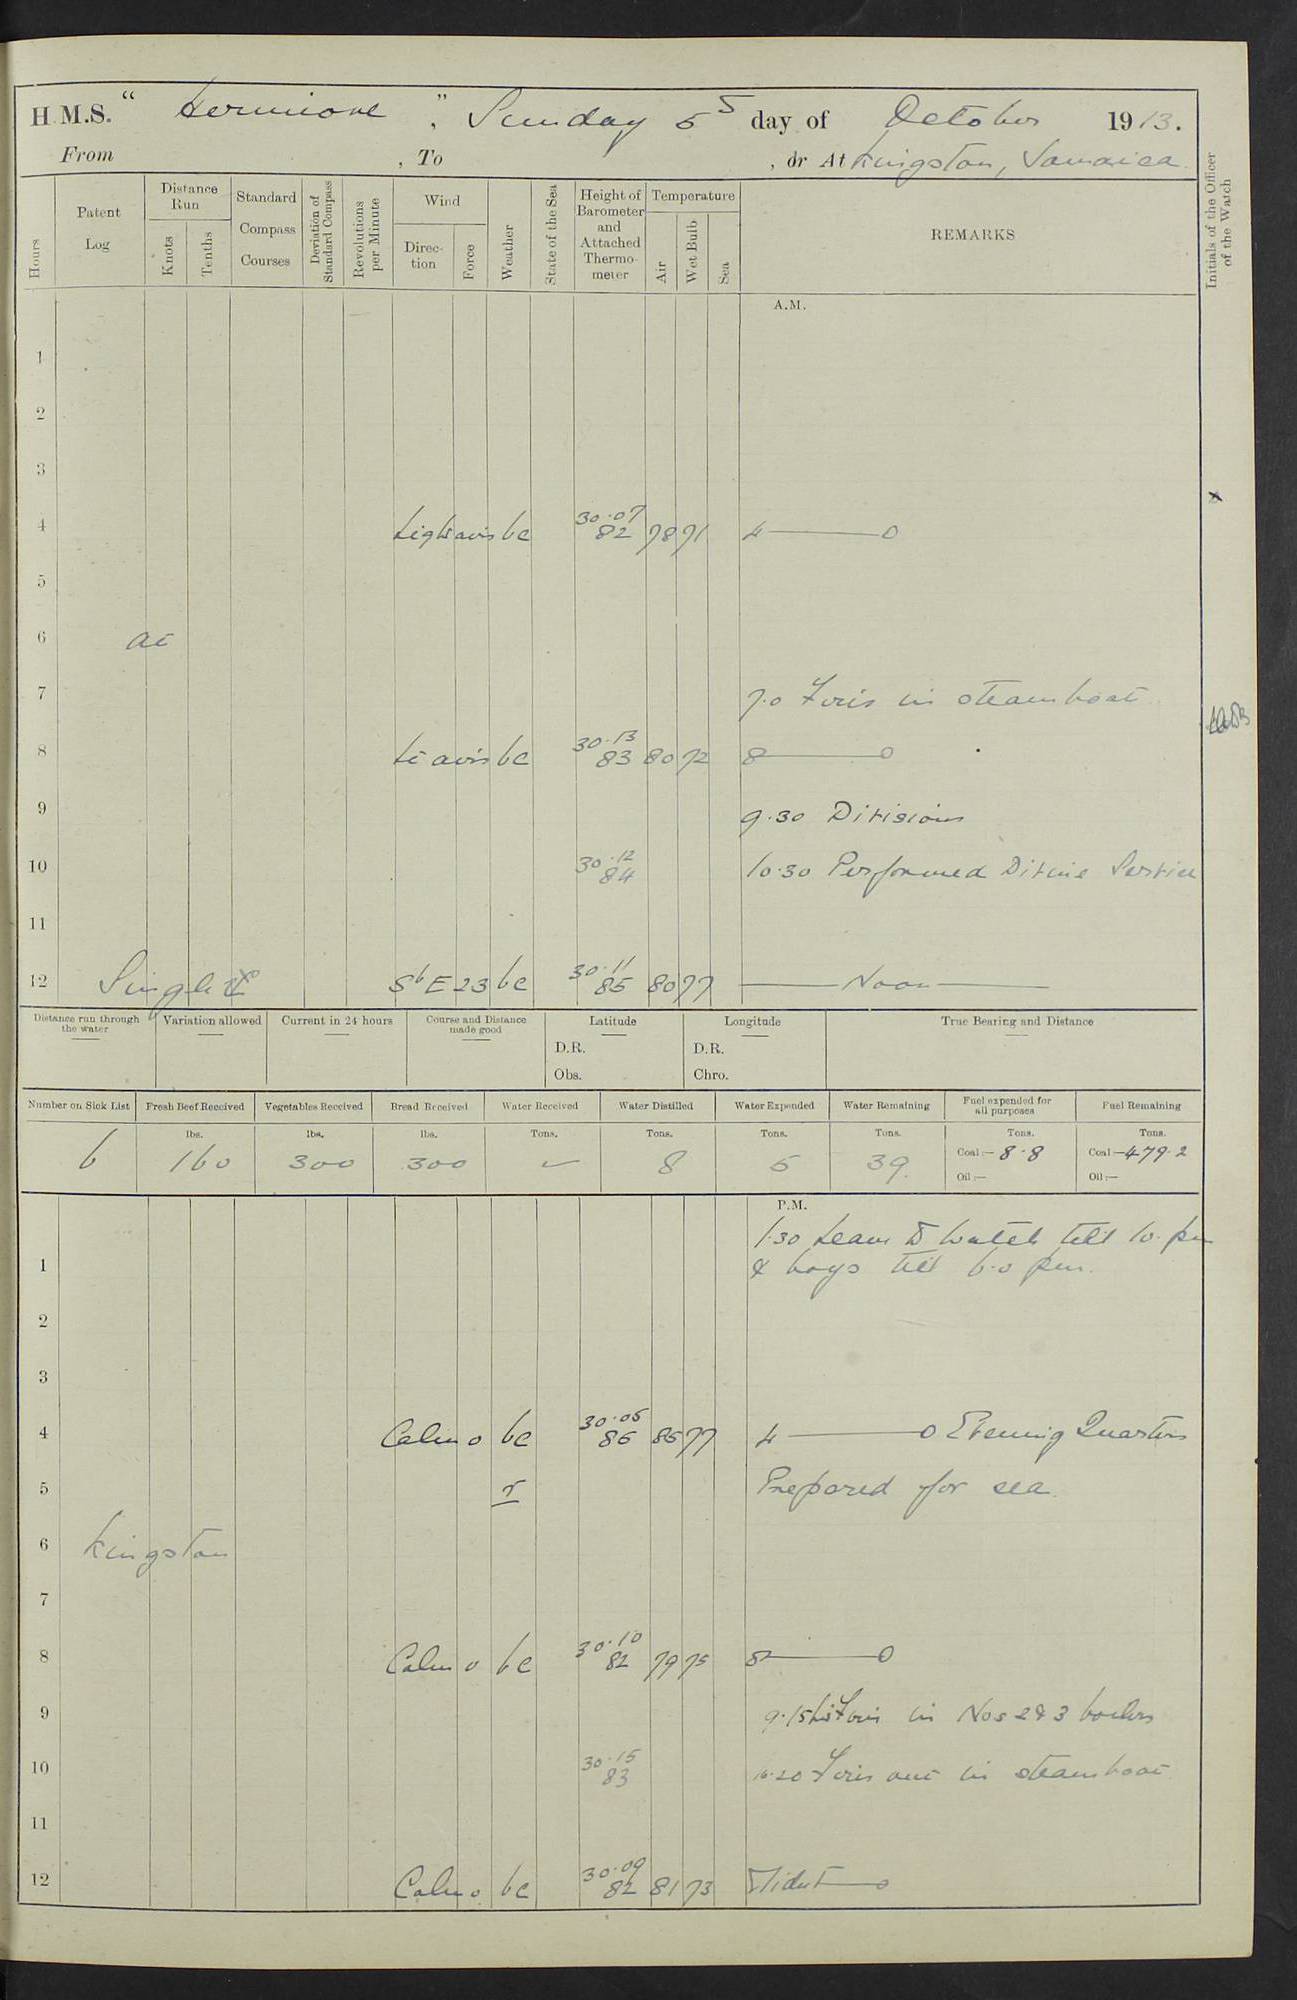 H.M.S. " Hermione ", Sunday 5 day of October 1913.
From , To , or At Kingston, Jamaica.
Hours
Patent Log
Distance Run
Knots
Tenths
Standard Compass Courses
Deviation of Standard Compass
Revolutions per Minute
Wind
Direction
Force
Weather
State of the Sea
Height of Barometer and Attached Thermometer
Temperature
Air
Wet Bulb
Sea
REMARKS
Initials of the Officer of the Watch
A.M.
1
2
3
4 Light airs bc 30.07 82 78 71 4 ——— 0
5
6 at
7 7.0 Fires in steamboat
8 Lt airs bc 30.13 83 80 72 8 ——— 0
9 9.30 Divisions
10 30.12 84 10.30 Performed Divine Service
11
12 Single SbE 23 bc 30.11 85 80 77 —— Noon ——
Distance run through the water
Variation allowed
Current in 24 hours
Course and Distance made good
Latitude
D.R.
Obs.
Longitude
D.R.
Chro.
True Bearing and Distance
Number on Sick List Fresh Beef Received Vegetables Received Bread Received Water Received Water Distilled Water Expended Water Remaining Fuel expended for all purposes Fuel Remaining
lbs. lbs. lbs. Tons. Tons. Tons. Tons. Tons. Tons.
6 160 300 300 8 5 39 Coal:— 8.8 Coal:— 479.2
Oil:— Oil:—
P.M.
1.30 Leave to watch till 10. pm
1 & boys till 6.0 pm.
2
3
4 Calm 0 bc 30.05 86 85 77 4 ——— 0 Evening Quarters
5 r Prepared for sea.
6 Kingston
7
8 Calm 0 bc 30.10 82 79 75 8 ——— 0
9 9.15 Lit Fires in Nos 2 & 3 boilers
10 30.15 83 10.20 Fires out in steamboat
11
12 Calm 0 bc 30.09 82 81 73 Midnt ——— 0